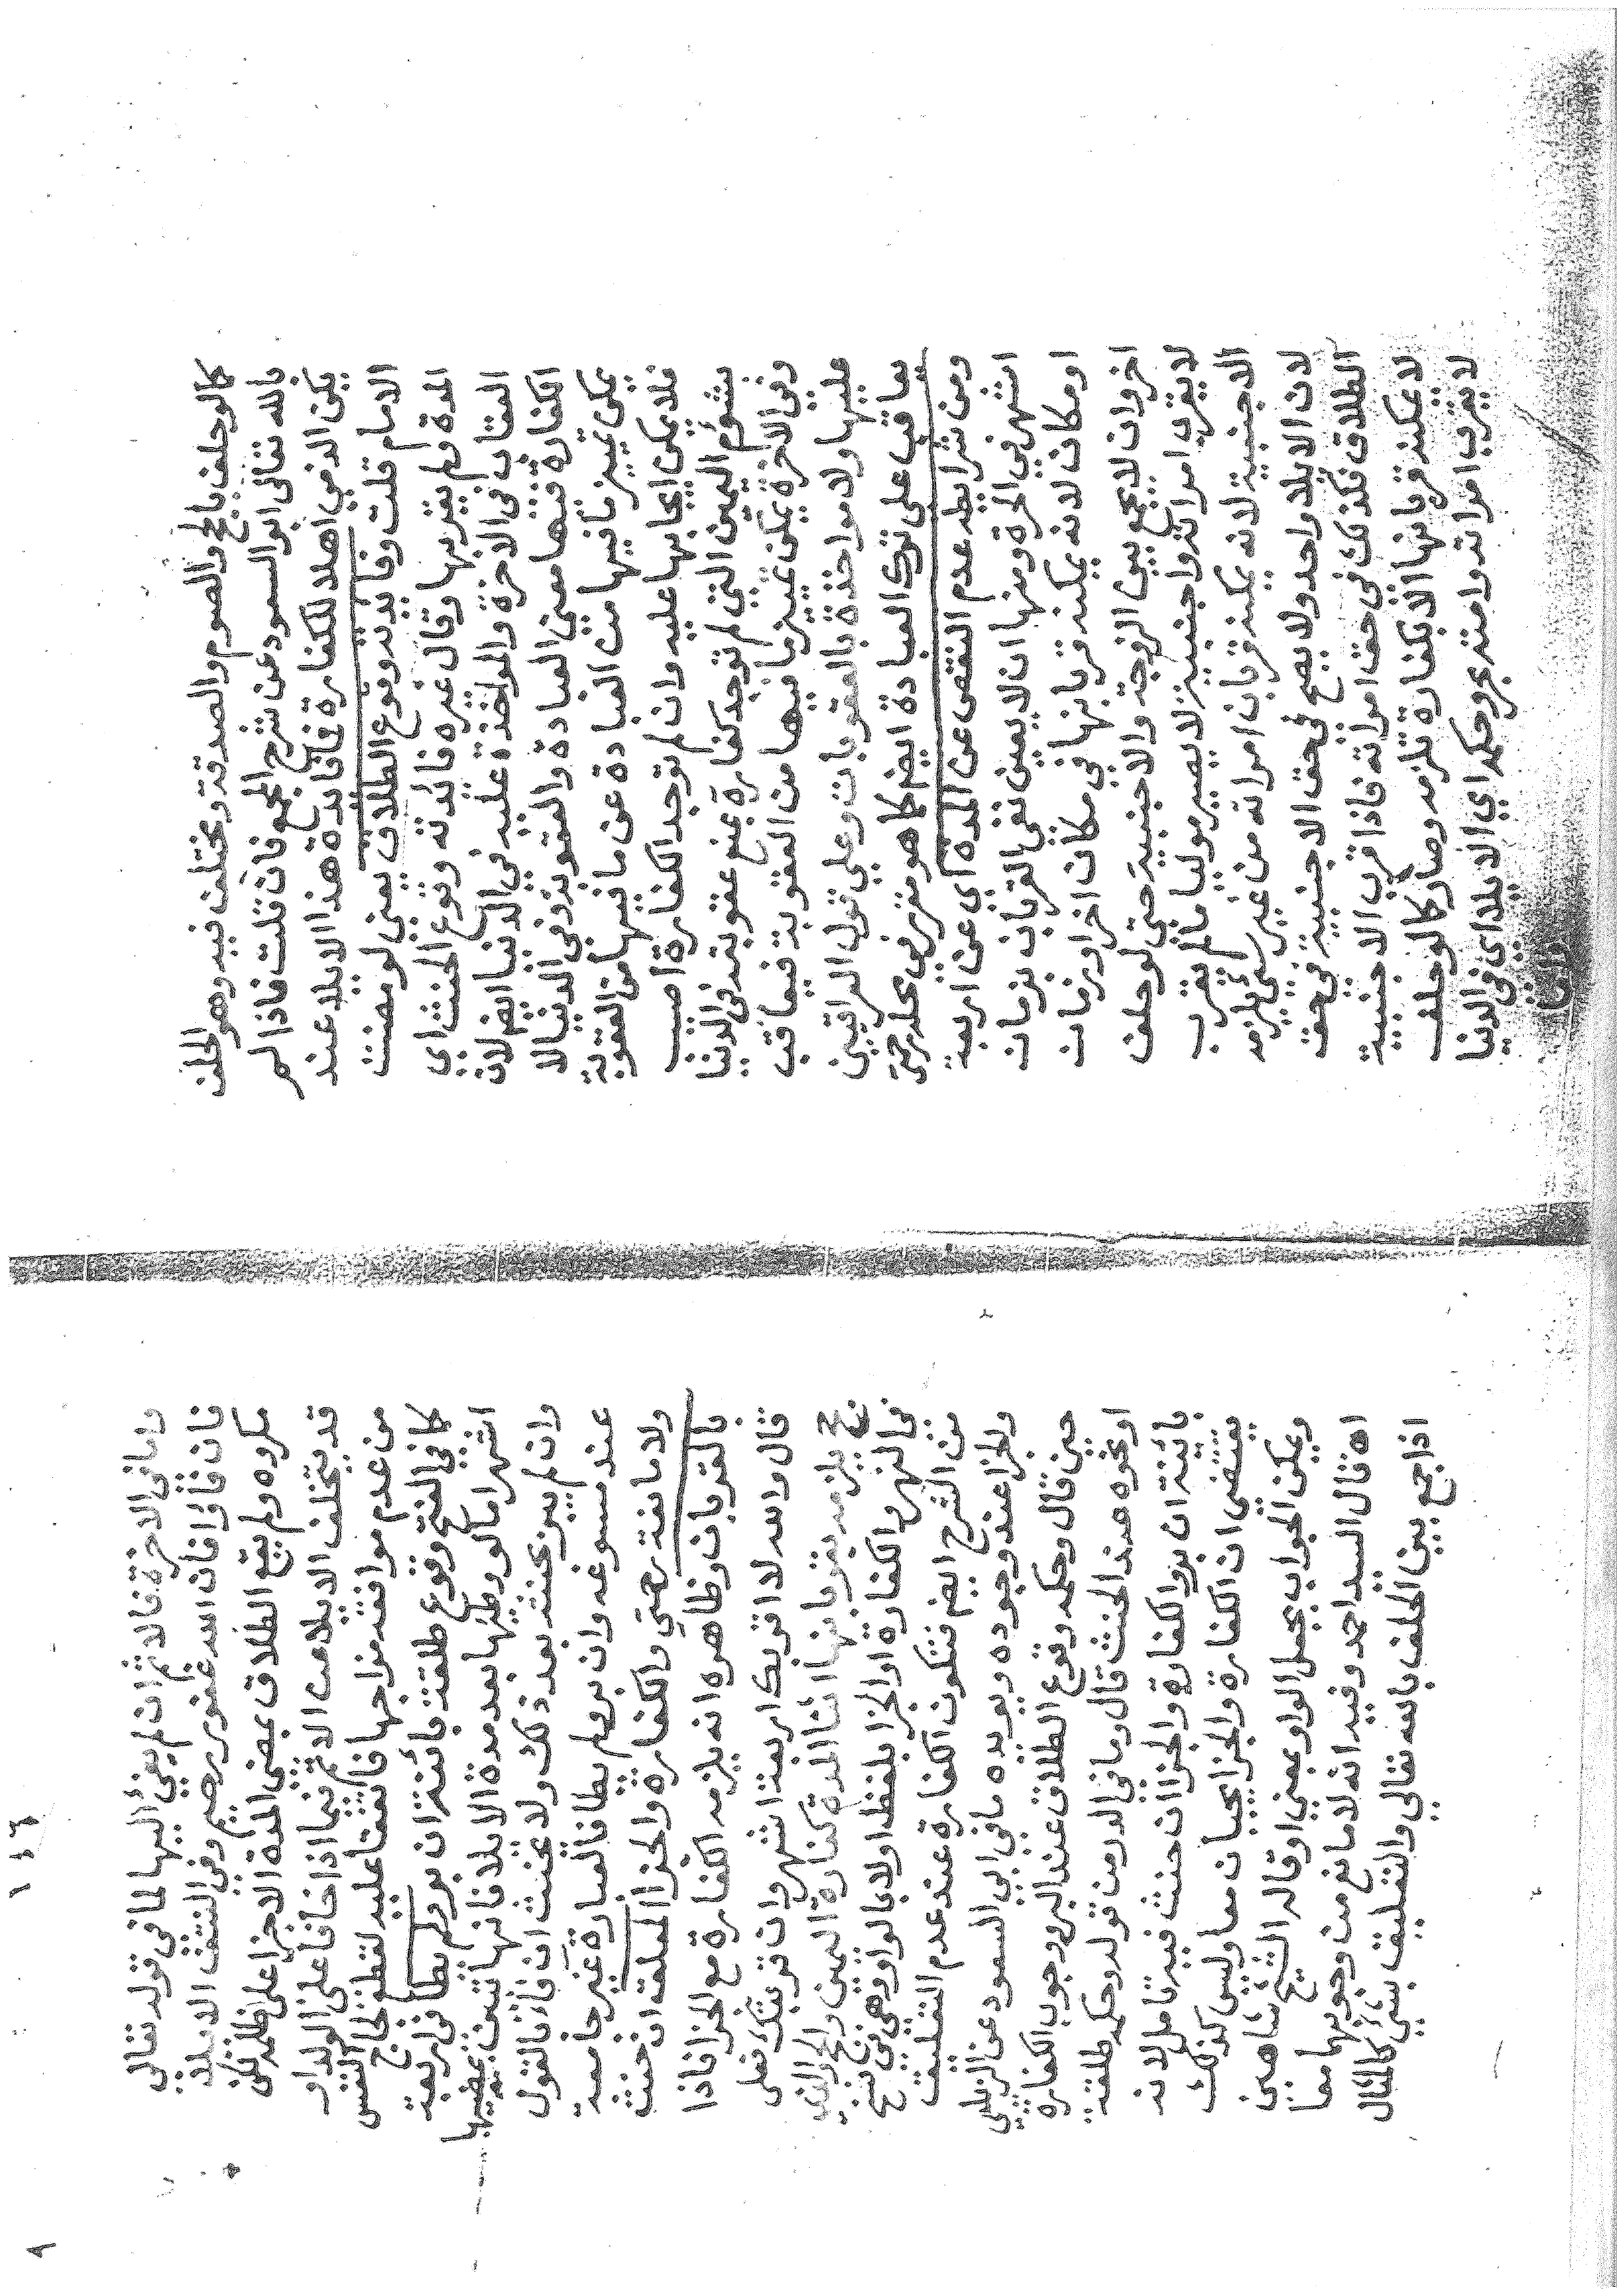 كالوحلف بالحج والصوم والصدقة ويختلف فيه وهو الحلف
بالله تعالى ابو السعود عن شرح المجمع فان قلت فاذا لم
يكن الذمي اهلا للكفارة فما فايدة هذا الايلاء عند
الامام قلت وفايدته وقوع الطلاق يعني لو مضت
المدة ولم يقربها وقال غيره فائدته وقوع الحنث اي
العقاب في الاخرة والمواخذة عليه في الدنيا ايضم لان
الكفارة فيها معنى العبادة والعقوبة وفي الدنيا لا
يمكن تمييز ما فيها من العبادة عن ما فيها من العقوبة
فلا يمكن ايجابها عليه وان لم توجد الكفارة اصيب
بشؤم اليمين التي لم توجد كفارة تمنع عقوبته في الدنيا
وفي الاخرة يمكن تمييز ما فيها من العقوبة فيعاقب
عليها ولا مواخذة بالعقوبات وعلى قول العراقيين
يعاقب على ترك العبادة ايضم كما هو مقرر في محله حتى
ومن شرايطه عدم النقص عن المدة اي عن اربعة
اشهر في الحرة ومنها ان لا يعين نفي القربان بزمان
او مكان لانه يمكنه قربانها في مكان اخر او زمان
اخر وان لا يجمع بين الزوجة والاجنبية حتى لو حلف
لا يقرب امراته واجنبية لا يصير موليا ما لم يقرب
الاجنبية لانه يمكنه قربان امراته من غير شئ يلزمه
لان الايلاء واحد ولا يصح في حق الاجنبية في حق
الطلاق فكذلك في حق امراته فاذا قرب الاجنبية
لا يمكنه قربانها الا بكفارة تلزمه وصار كما لو حلف
لا يقرب امراته وامته بحر وحكمه اي الايلاء اي في الدنيا
واما
واما في الاخرة فالاثم ان لم يفئ اليها لما في قوله تعالى
فان فاؤا فان الله غفور رحيم وفي النتف الايلاء
مكروه ولم يقع الطلاق بمضي المدة الا جزاء على ظلمه لكن
قد يتخلف الايلا من الاثم فيما اذا خاف على الولد او
من عدم موافقة مزاجها فاتفقا عليه لقطع لجاج النفس
كما في الفتح وقوع طلقة بائنة ان بر ولم يطأ في اربعة
اشهر اما لو وطئها بعد مدة الايلا فانها تبين بمضيها
وان لم يبر بحنثه بعد ذلك ولا يحنث ان فاء بالقول
عند مسوغه وان بر ولم يطا فالعبارة غير جامعة
ولا مانعة رحمتي والكفارة والجزاء المعلق ان حنث
بالقربان وظاهره انه يلزمه الكفارة مع الجزا فاذا
قال والله لا اقربك اربعة اشهر وان قربتك فعلى
حج يلزمه بقربانها اثنا المدة كفارة اليمين والحج والذي
في النهر والكفارة او الجزا بلفظ او لا بالواو وهي في نسخ
من الشرح ايضم فتكون الكفارة عند عدم التعليق
والجزا عند وجوده ويويده ما في ابي السعود عن الزيلعي
حين قال وحكمه وقوع الطلاق عند البر ووجوب الكفارة
او نحوه عند الحنث قال وما في الدر من قوله وحكمه طلقة
بائنة ان بر والكفارة والجزا ان حنث فيه تامل لانه
يقتضي ان الكفارة والجزا يجبان معا وليس كذلك
ويمكن الجواب بجعل الواو بمعنى او قاله الشيخ شاهين
اه قال السيد احمد وفيه انه لا مانع من وجوبهما معا
اذا جمع بين الحلف بالله تعالى والتعليق بشئ كالمثال